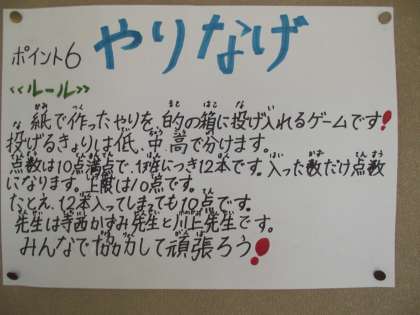 ポイント6 やりなげ
<<ルール>>
紙で作ったやりを、的の箱に投げ入れるゲームです!
投げるきょりは低、中、高で分けます。
点数は10点満点で、1班につき12本です。入った数だけ点数
になります。上限は10点です。
たとえ、12本入ってしまっても10点です。
先生は寺西かすみ先生と川上先生です。
みんなで協力して頑張ろう!